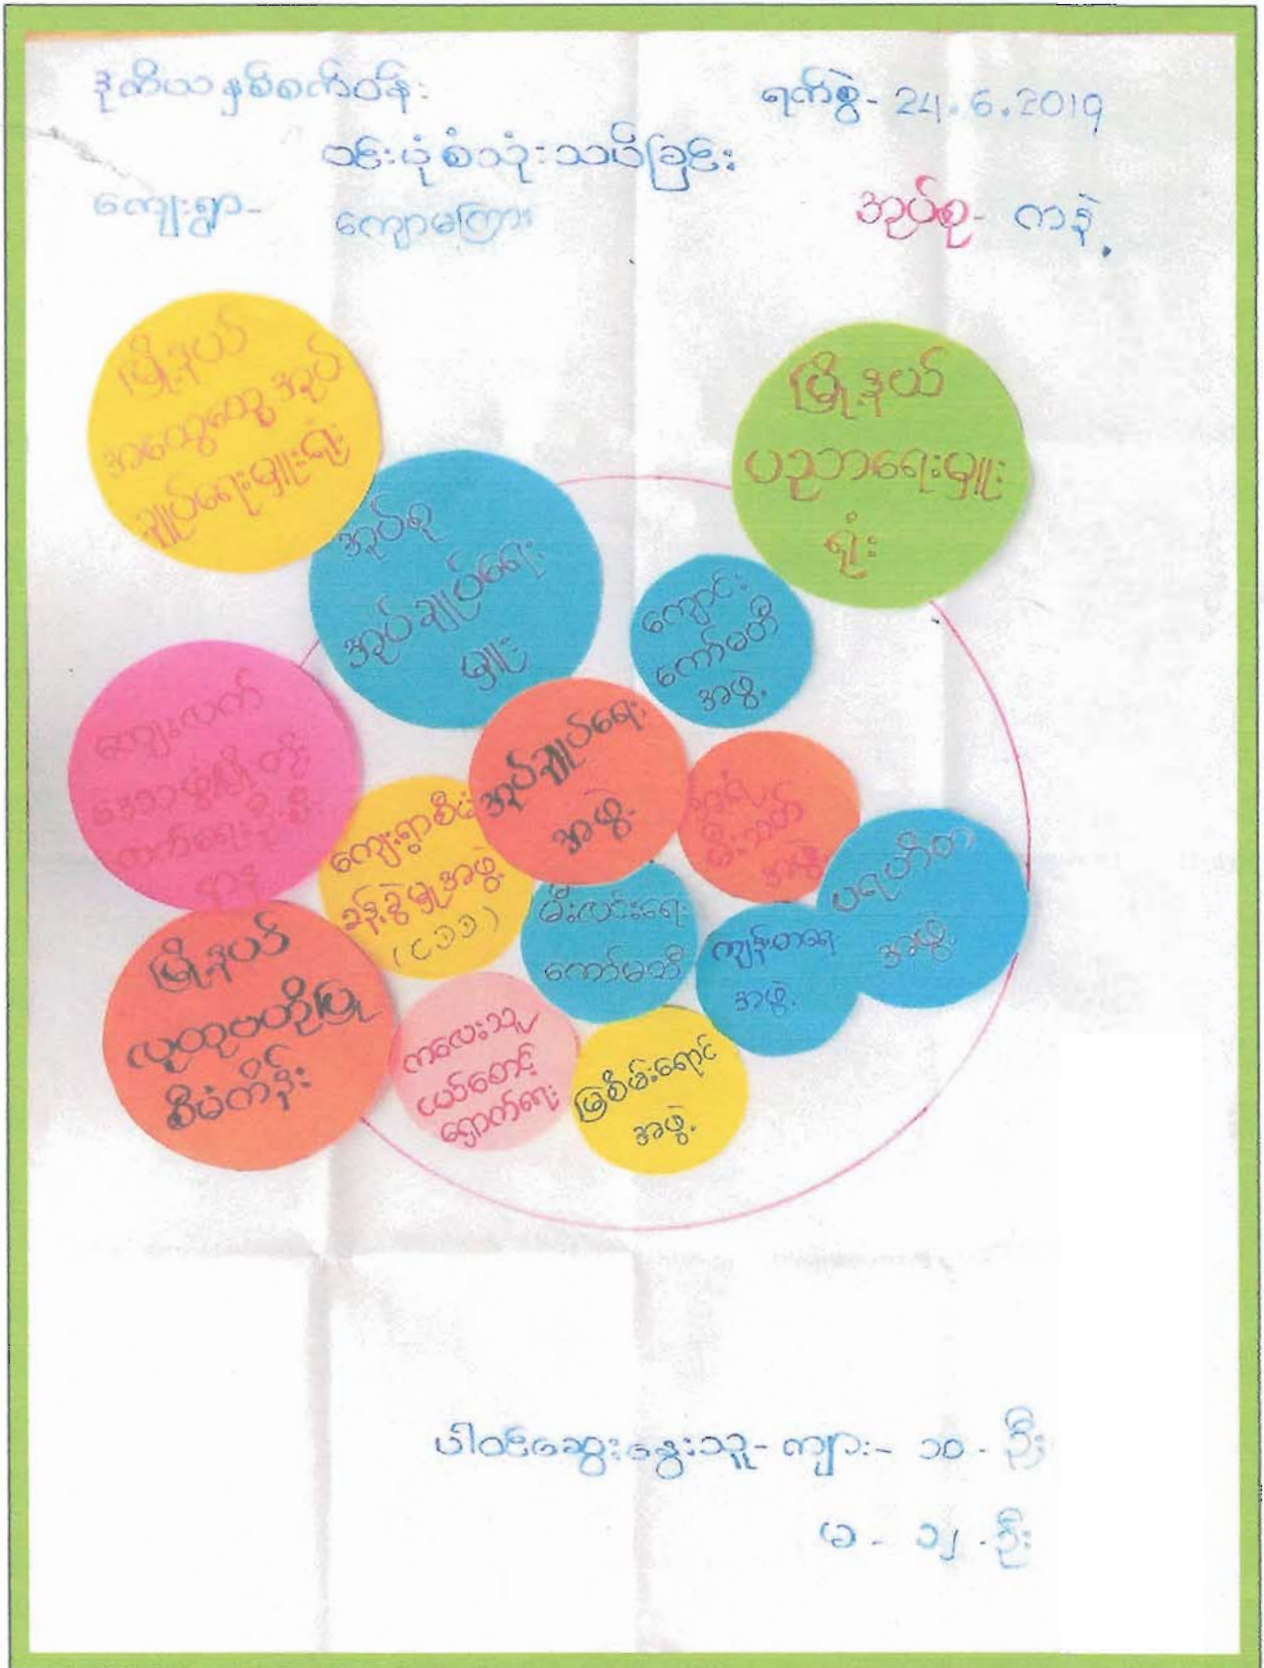 ဒုတိယနှစ်စက်ဝန်း
ရက်စွဲ- 24.6.2019
ဝင်းပုံစံသုံးသပ်ခြင်း
ကျေးရွာ- ကျောမကြား
အုပ်စု- ကနဲ့
မြို့နယ်
အထွေထွေအုပ်
ချုပ်ရေးမှူးရုံး
မြို့နယ်
ပညာရေးမှူး
ရုံး
အုပ်စု
အုပ်ချုပ်ရေး
မှူး
ကျောင်း
ကော်မတီ
အဖွဲ့
ကျေးလက်
ဒေသဖွံ့ဖြိုးတိုး
တက်ရေးဦးစီး
ဌာန
အုပ်ချုပ်ရေး
အဖွဲ့
မီးသတ်
အဖွဲ့
ကျေးရွာစီမံ
ခန့်ခွဲမှုအဖွဲ့
(CDD)
မီးလင်းရေး
ကော်မတီ
ပရဟိတ
အဖွဲ့
ကျန်းမာရေး
အဖွဲ့
မြို့နယ်
လူထုဗဟိုပြု
စီမံကိန်း
ကလေးသူ
ငယ်စောင့်
ရှောက်ရေး
မြစိမ်းရောင်
အဖွဲ့
ပါဝင်ဆွေးနွေးသူ- ကျား- ၁၀ - ဦး
မ - ၁၂ - ဦး